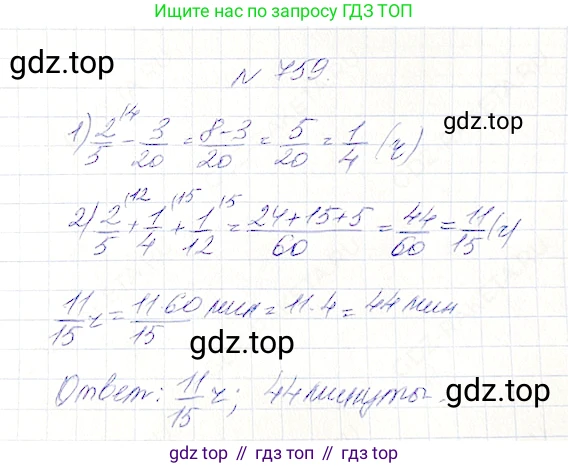 Ищите нас по запросу ГДЗ ТОП
gdz.top
N 759.
gdz.top
1) 2/5 (4 - 3/20 = 8-3/20 = 5/20 = 1/4 (ч)
2) 2/5 (12 + 1/4 (15 + 1/12 (5 = 24+15+5/60 = 44/60 = 11/15 (ч)
11/15 ч = 11·60/15 мин = 11·4 = 44 мин
gdz.top
Ответ: 11/15 ч; 44 минуты.
gdz.top
gdz.top // гдз топ // gdz.top // гдз топ